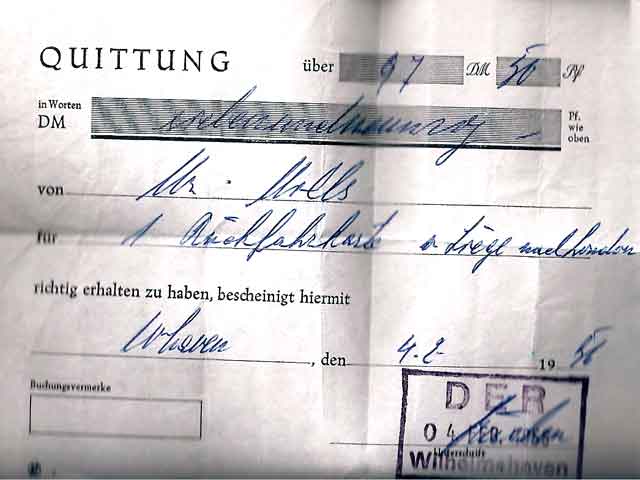 QUITTUNG über 97 DM 50 Pf
in Worten DM siebenundneunzig – Pf. wie oben
von Mr. Mills
für 1 Rückfahrkarte v. Liège nach London
richtig erhalten zu haben, bescheinigt hiermit
W'haven, den 4.2. 1956
Buchungsvermerke
DER
04 FEB.
Unterschrift
Wilhelmshaven